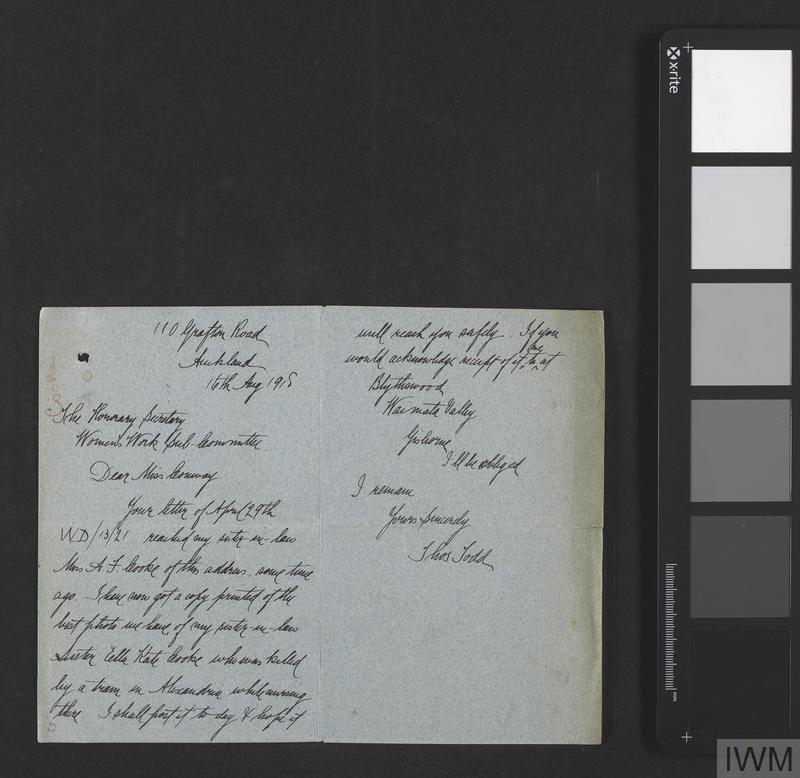 110 Grafton Road
Auckland
16th Aug 1918
The Honorary Secretary
Women's Work Sub-Committee.
Dear Miss Conway
Your letter of April 29th
WD/13/21 reached my sister-in-law
Miss A F Cooke of this address some time
ago. I have now got a copy printed of the
best photo we have of my sister-in-law
Sister Ella Kate Cooke who was killed
by a tram in Alexandria while nursing
there. I shall post it to day & hope it
will reach you safely. If you
would acknowledge receipt of it, to me at
Blythswood
Waimata Valley
Gisborne
I'll be obliged
I remain
Yours Sincerely
Thos Todd
Cooke
x-rite
mm
IWM